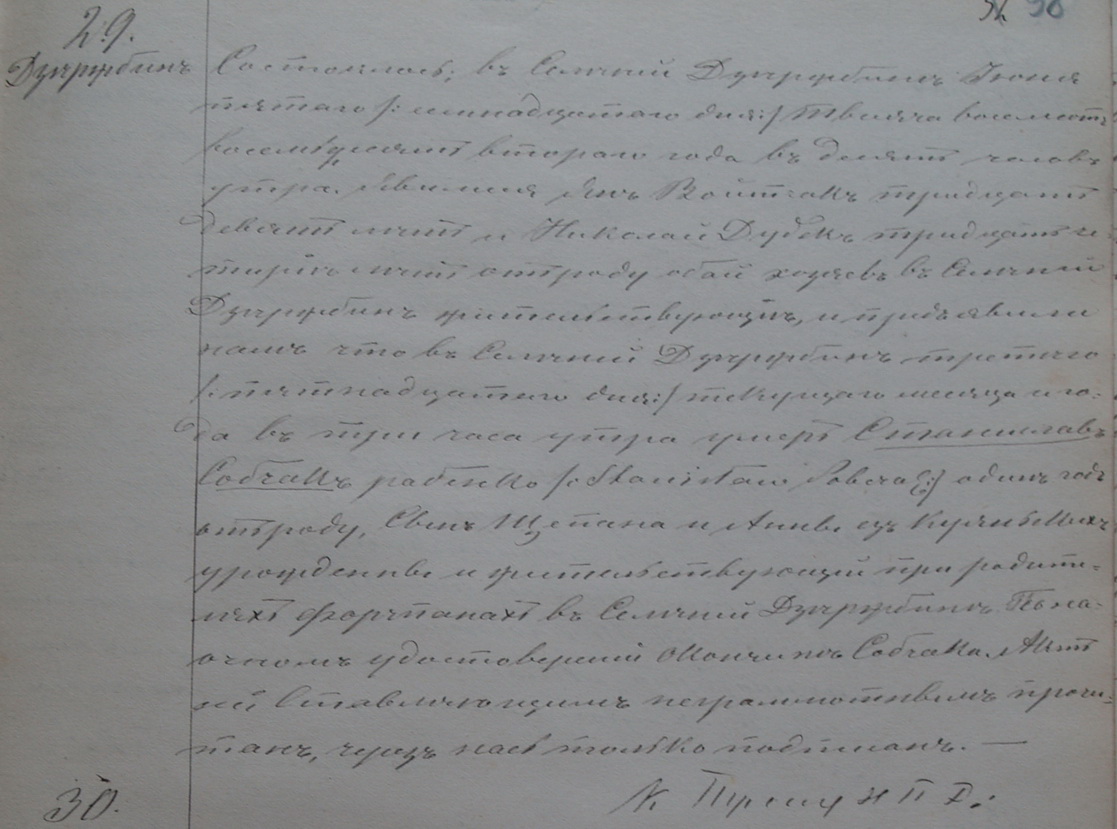 29.
Дужружбинъ
Состоялось; въ Селений Дужружбинъ Іюня
пятаго /: семнадцатаго дня:/ тысяча восемотъ
восемьдесятъ втораго года въ девять часовъ
утра. Явилися Янъ Войтакъ тридцать
девять летъ и Николай Дубекъ тридцать че-
тыри летъ отроду обай хозяевъ въ Селений
Дужружбинъ жительствующій, и предъявили
намъ что въ Селений Дужружбинъ третяго
/: пятнадцатаго дня:/ текущаго месяца и го-
да въ три часа утра умеръ Станиславъ
Собчакъ рабенко /: Stanisław :/ одинъ годъ
отъ роду, Сынъ Щепана и Анны изъ
урожденны и жительствующій при родите-
ляхъ въ Селений Дужружбинъ. По на-
очномъ удостоверений окончинъ Собчака. Актъ
сей неграмотнымъ прочи-
танъ, черезъ насъ только подписанъ. —
30.